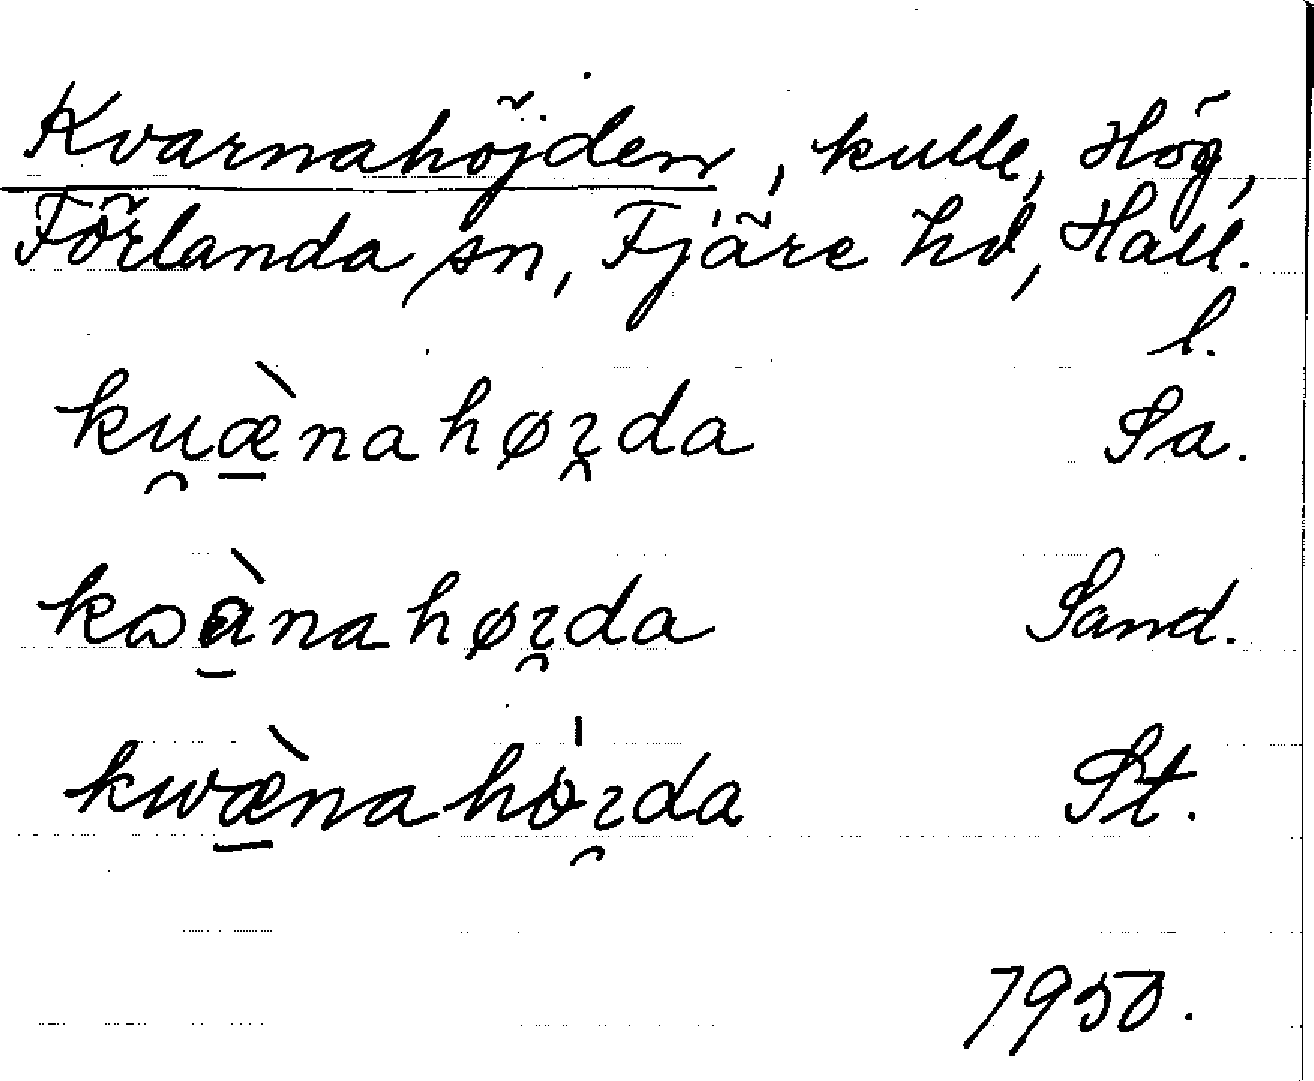 Kvarnahöjden, kulle, Hög,
Förlanda sn, Fjäre hd, Hall.
l.
ku̯æ̠̀nahøı̯da Sa.
kωà̠nahøı̯da Sand.
kwæ̠̀nahø̍ı̯da St.
1950.